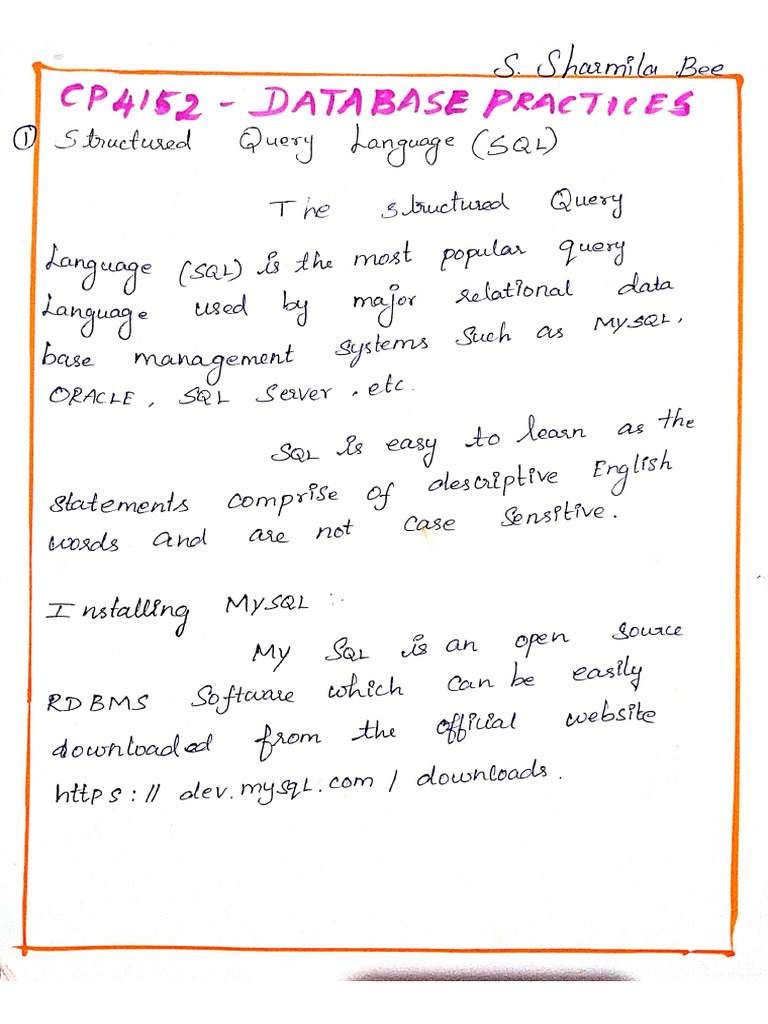 S. Sharmila Bee
CP4152 - DATABASE PRACTICES
① Structured Query Language (SQL)
The structured Query
Language (SQL) is the most popular query
Language used by major relational data
base management systems such as MySQL,
ORACLE, SQL Server, etc.
SQL is easy to learn as the
statements comprise of descriptive English
words and are not case sensitive.
Installing MySQL :-
My SQL is an open source
RDBMS Software which can be easily
downloaded from the official website
https://dev.mysql.com/downloads.